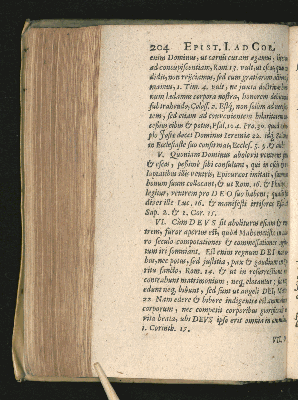 204 EPIST. I. AD COR.
enim Dominus, ut carni curam agamus,
ad concupiscentiam, Rom 13. vult, ut ea, quæ
didit, non rejiciamus, sed cum gratiarum
mamus, 1. Tim. 4. vult, ne juxta doctrinas
num ledamus corpora nostra, honorem debitum
sub trahendo, Coloss. 2. Estq́; non solum ad
tem, sed etiam ad convenientem hilaritatem
cessum cibus & potus, Psal. 104. Pro. 30. quod
pio Josiæ docet Dominus Jeremiæ 22. idq́;
in Ecclesiaste suo confirmat, Eccles. 5. 9. &
V. Quoniam Dominus aboleret ventrem
& escas, pessimè sibi consulunt, qui in
luptatibus illis ventris, Epicureos imitati,
bonum suum collocant, & ut Rom. 16. & Philip.
legitur, ventrem pro DEO suo habent,
dives ille Luc. 16. & manifesti irrisores
Sap. 2. & 1. Cor. 15.
VI. Cùm DEUS sit aboliturus escam &
trem, furor apertus est, quòd Mahometistæ in
ro seculo compotationes & commessationes
turi iri somniant. Est enim regnum DEI non
bus, nec potus, sed justitia, pax & gaudium in
ritu sancto, Rom. 14. & ut in resurrectione non
contrahunt matrimonium, neq́; elocantur:
edunt neq́; bibunt, sed sunt ut angeli DEI,
22. Nam edere & bibere indigentis est
corporum, nec competit corporibus
vita beata, ubi DEUS ipse erit omnia in omnibus
1. Corinth. 15.
VII.